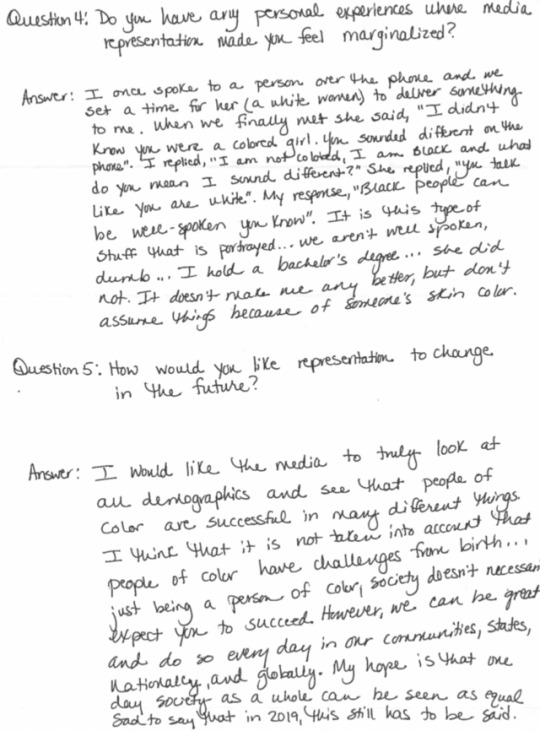 Question 4: Do you have any personal experiences where media
representation made you feel marginalized?
Answer: I once spoke to a person over the phone and we
set a time for her (a white women) to deliver something
to me. When we finally met she said, "I didn't
know you were a colored girl. You sounded different on the
phone". I replied, "I am not colored, I am Black and what
do you mean I sound different?" She replied, "you talk
like you are white". My response, "Black people can
be well-spoken you know". It is this type of
stuff that is portrayed... we aren't well spoken,
dumb... I hold a bachelor's degree... she did
not. It doesn't make me any better, but don't
assume things because of someone's skin color.
Question 5: How would you like representation to change
in the future?
Answer: I would like the media to truly look at
all demographics and see that people of
color are successful in many different things.
I think that it is not taken into account that
people of color have challenges from birth...
just being a person of color, society doesn't necessari
expect you to succeed. However, we can be great
and do so every day in our communities, states,
nationally, and globally. My hope is that one
day society as a whole can be seen as equal
Sad to say that in 2019, this still has to be said.